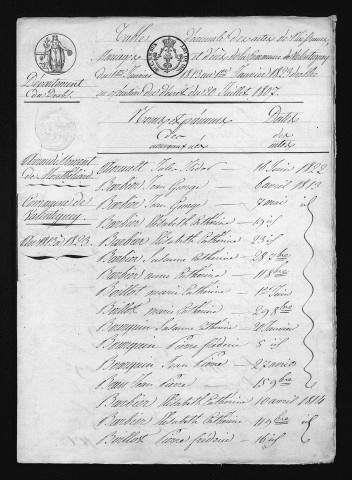 Table décennale des actes de Naissances,
Mariages et Décès de la Commune de Valentigney
du 1er Janvier 1813 au 1er Janvier 1823 dressée
en exécution du décret du 20 Juillet 1807.
Département
du Doubs
Arrondissement
de Montbéliard
Commune de
Valentigney
Noms et prénoms Dates
des des
nouveaux nés actes
Jules 16 Juin 1822
Barbier Jean George 6 avril 1813
Jean George 7 mai id
Barbier Elisabeth Catherine id
Barbier Elisabeth Catherine 23 id
Barbier Susanne Catherine 28 7bre
Barbier anne Catherine 11 8bre
Boillot marie Catherine 12 Juin
Boillot marie Catherine 29 8bre
Bourquin Susanne Catherine 20 Janvier
Bourquin Pierre frédéric 5 id
Bourquin Jean Pierre 27 avril
Jean Pierre 15 9bre
Barbier Elisabeth Catherine 10 avril 1814
Barbier Elisabeth Catherine 9bre id
Boillot Pierre frédéric 16 id